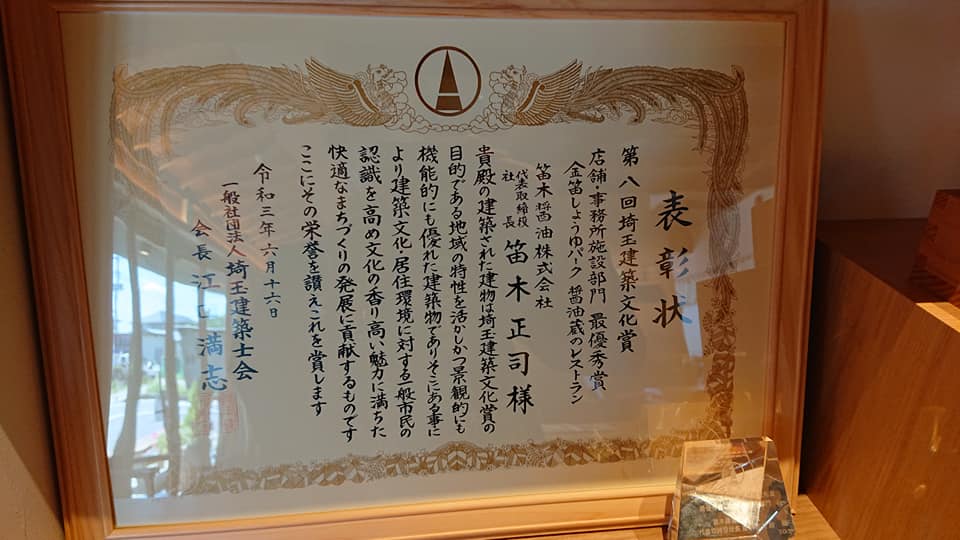 表彰状
第八回埼玉建築文化賞
店舗・事務所施設部門 最優秀賞
金笛しょうゆパーク 醤油蔵のレストラン
笛木醤油株式会社
代表取締役
社長
笛木正司様
貴殿の建築された建物は埼玉建築文化賞の
目的である地域の特性を活かしかつ景観的にも
機能的にも優れた建築物でありそこにある事に
より建築文化居住環境に対する一般市民の
認識を高め文化の香り高い魅力に満ちた
快適なまちづくりの発展に貢献するものです
ここにその栄誉を讃えこれを賞します
令和三年六月十六日
一般社団法人 埼玉建築士会
会長 江口満志